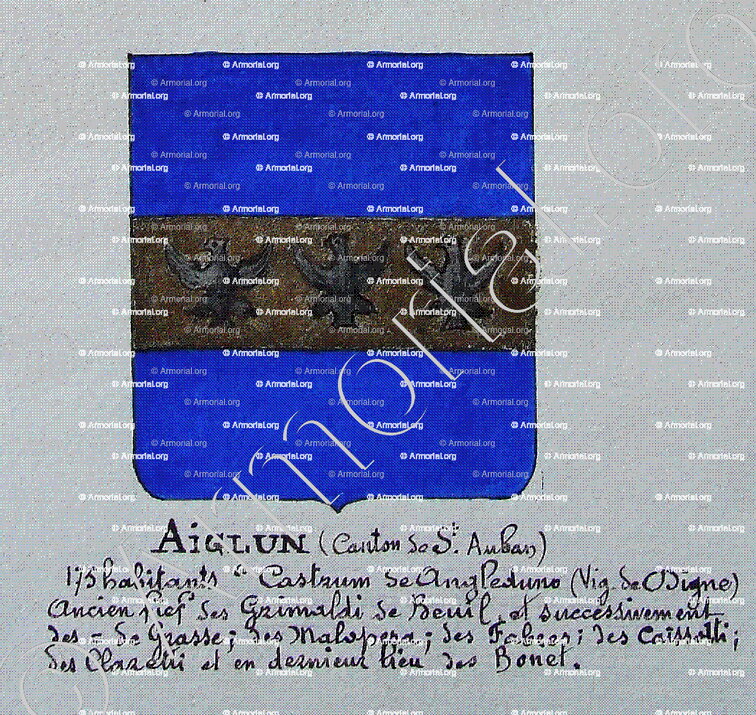 AIGLUN (Canton de St. Auban)
175 habitants " Castrum de Angleduno (Vig. de Digne)
Ancien fief des Grimaldi de Beuil, et successivement
des de Grasse; des Malopera; des Fabres; des Caissotti;
des Claretti et en dernieur lieu des Bonet.
© Armorial.org